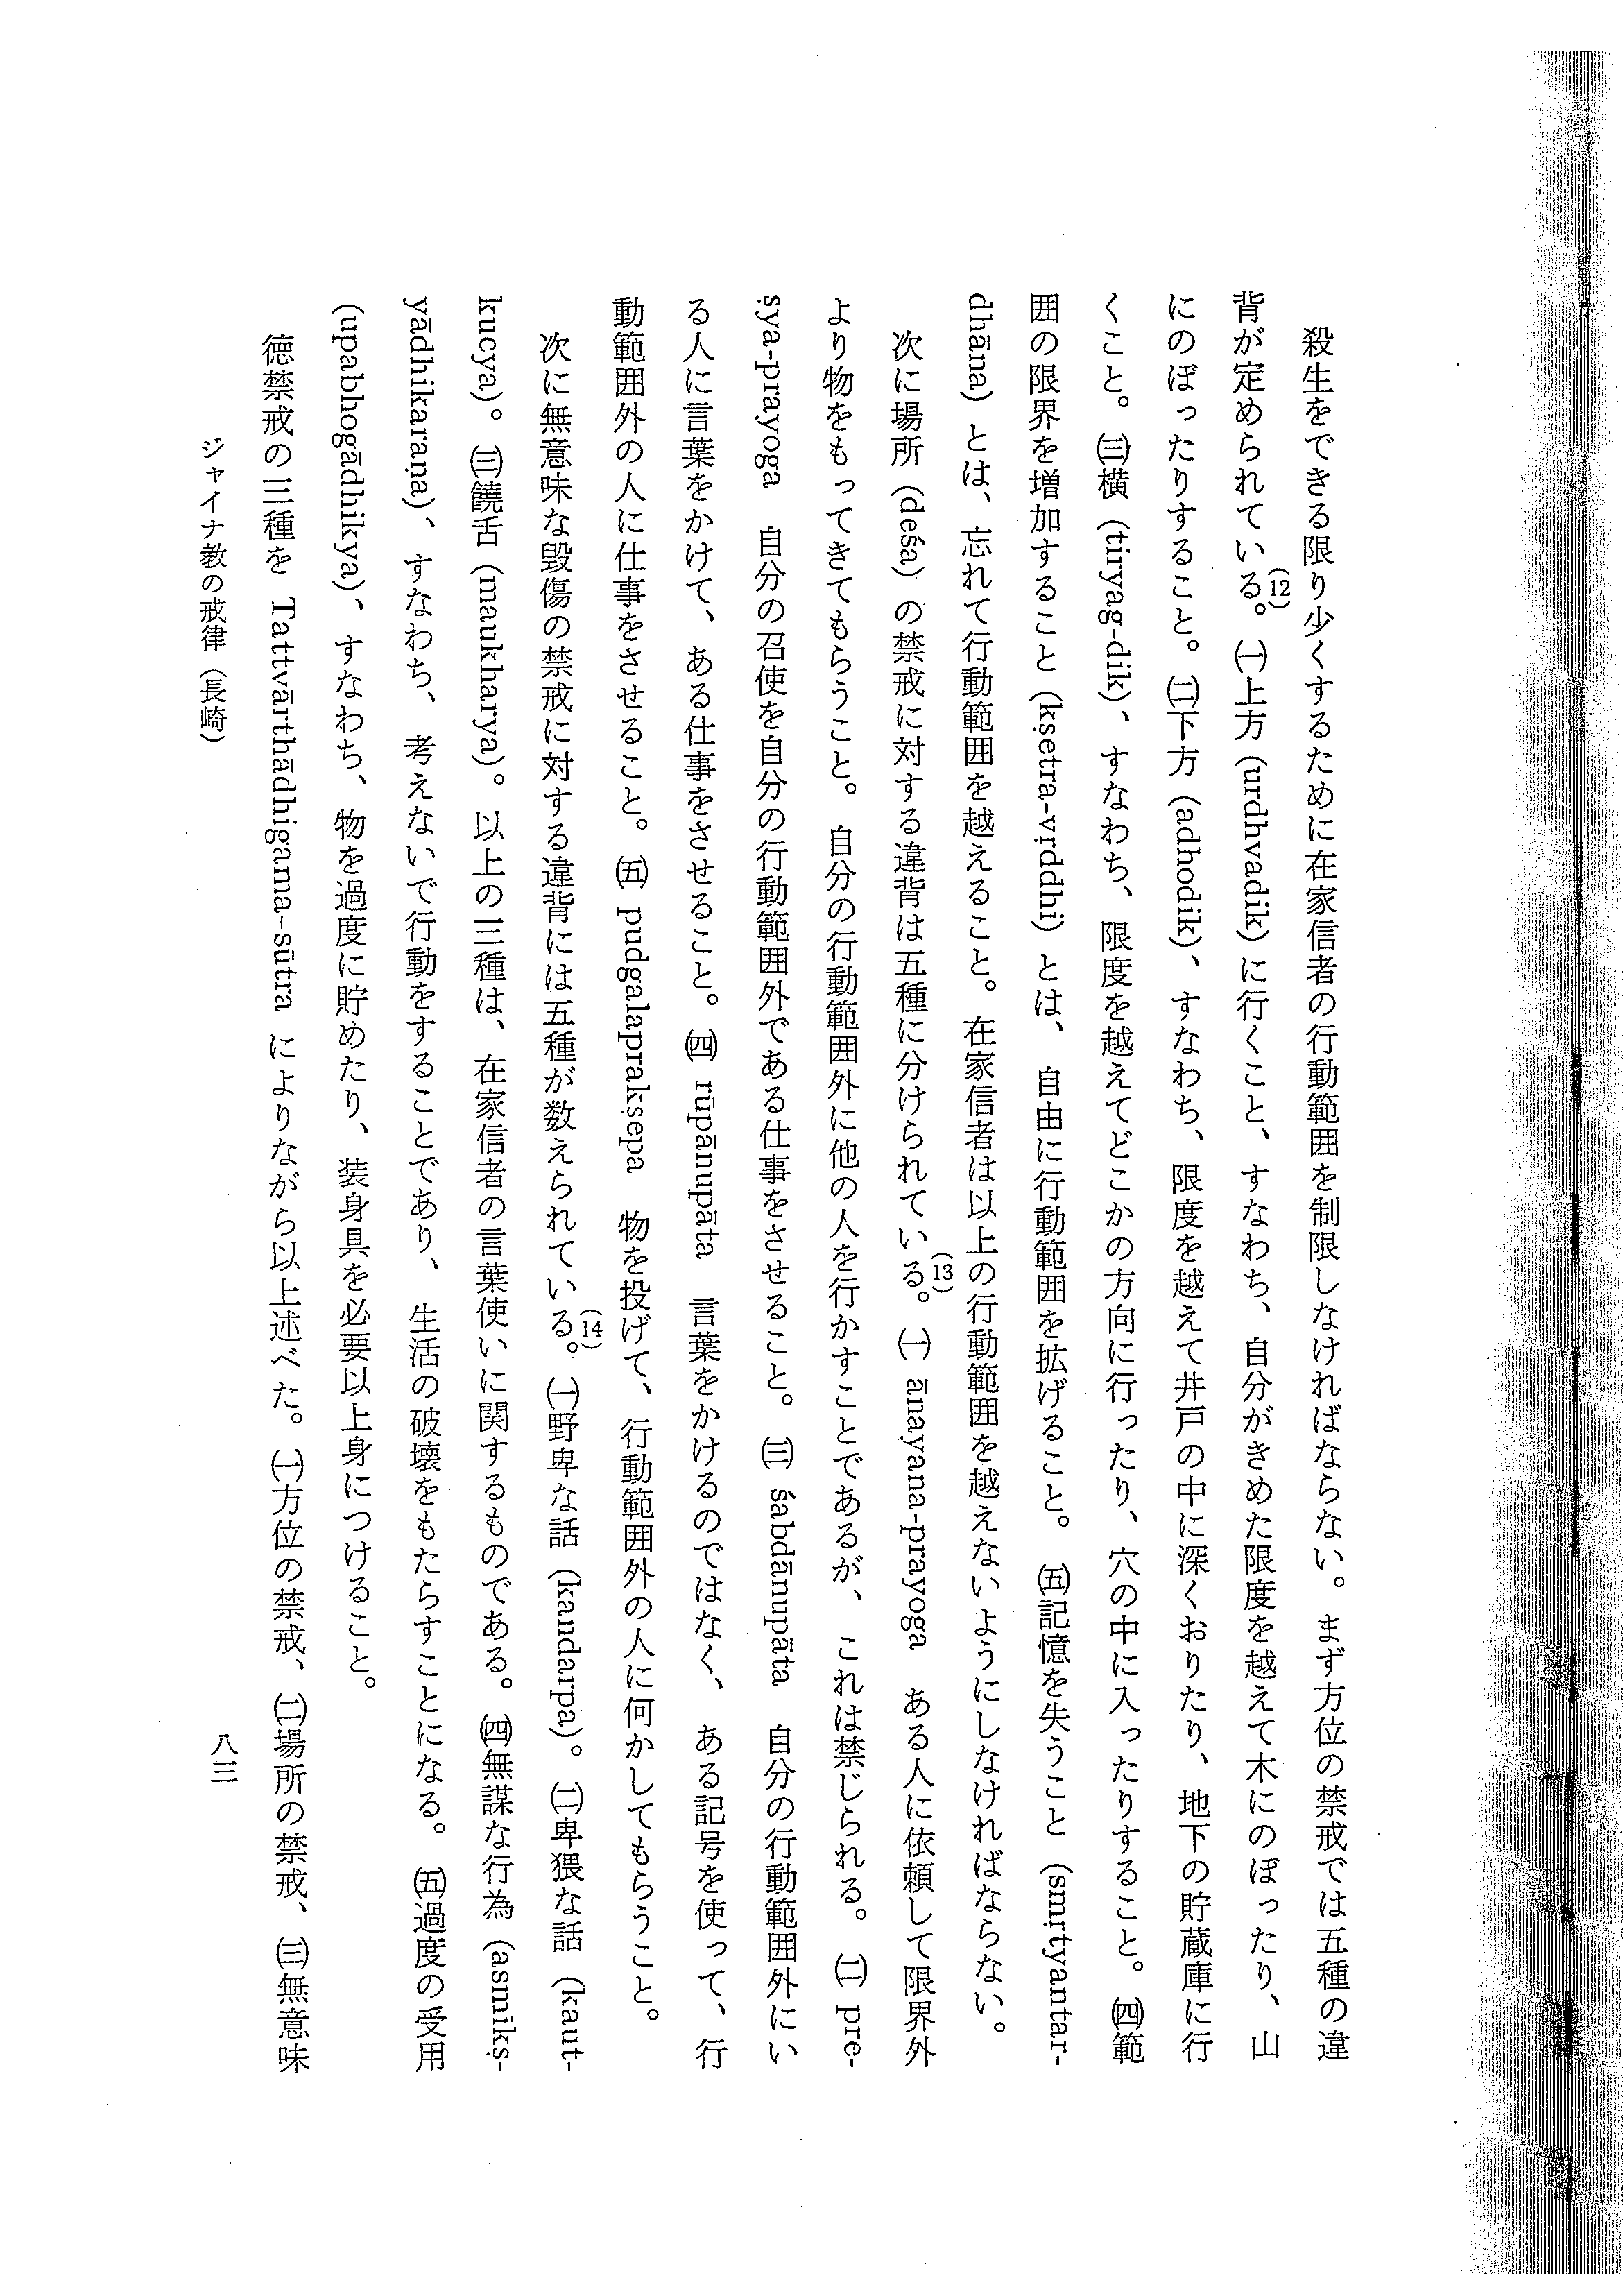 殺生をできる限り少くするために在家信者の行動範囲を制限しなければならない。まず方位の禁戒では五種の違
背が定められている。(12)㈠上方 (urdhvadik) に行くこと、すなわち、自分がきめた限度を越えて木にのぼったり、山
にのぼったりすること。㈡下方 (adhodik)、すなわち、限度を越えて井戸の中に深くおりたり、地下の貯蔵庫に行
くこと。㈢横 (tiryag-dik)、すなわち、限度を越えてどこかの方向に行ったり、穴の中に入ったりすること。㈣範
囲の限界を増加すること (kṣetra-vṛddhi) とは、自由に行動範囲を拡げること。㈤記憶を失うこと (smṛtyantar-
dhāna) とは、忘れて行動範囲を越えること。在家信者は以上の行動範囲を越えないようにしなければならない。
次に場所 (deśa) の禁戒に対する違背は五種に分けられている。(13)㈠ ānayana-prayoga ある人に依頼して限界外
より物をもってきてもらうこと。自分の行動範囲外に他の人を行かすことであるが、これは禁じられる。㈡ pre-
ṣya-prayoga 自分の召使を自分の行動範囲外である仕事をさせること。㈢ śabdānupāta 自分の行動範囲外にい
る人に言葉をかけて、ある仕事をさせること。㈣ rūpānupāta 言葉をかけるのではなく、ある記号を使って、行
動範囲外の人に仕事をさせること。㈤ pudgalaprakṣepa 物を投げて、行動範囲外の人に何かしてもらうこと。
次に無意味な毀傷の禁戒に対する違背には五種が数えられている。(14)㈠野卑な話 (kandarpa)。㈡卑猥な話 (kaut-
kucya)。㈢饒舌 (maukharya)。以上の三種は、在家信者の言葉使いに関するものである。㈣無謀な行為 (asmikṣ-
yādhikaraṇa)、すなわち、考えないで行動をすることであり、生活の破壊をもたらすことになる。㈤過度の受用
(upabhogādhikya)、すなわち、物を過度に貯めたり、装身具を必要以上身につけること。
徳禁戒の三種を Tattvārthādhigama-sūtra によりながら以上述べた。㈠方位の禁戒、㈡場所の禁戒、㈢無意味
ジャイナ教の戒律（長崎）
八三